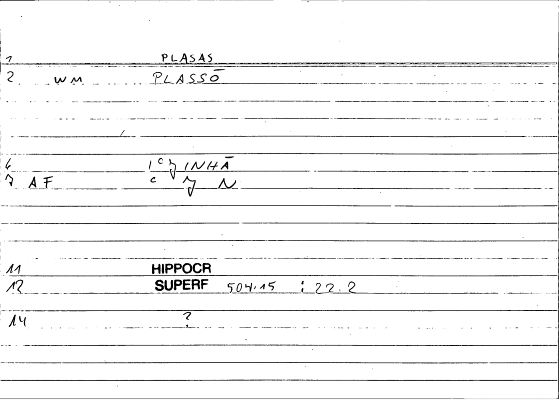 1 PLASAS
2 WM PLASSŌ
6 1 C INHĀ
7 AF C N
11 HIPPOCR
12 SUPERF 504.15 : 22.2
14 ?